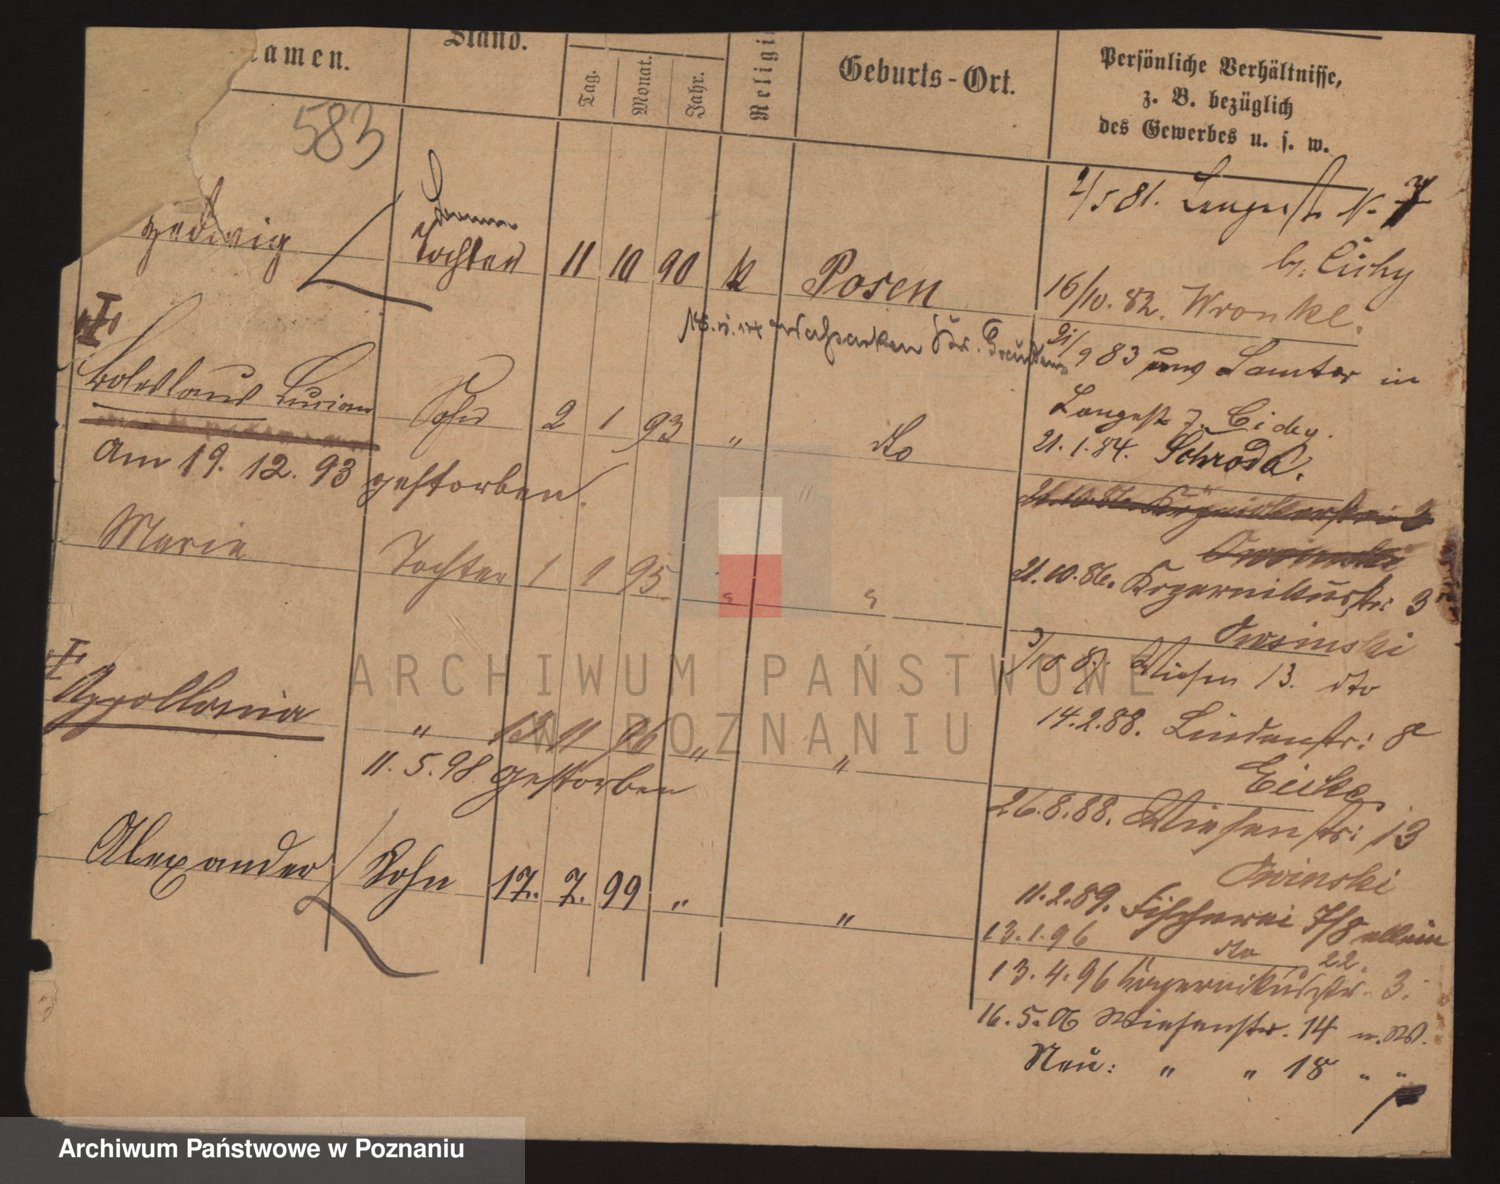 amen.
Stand.
Tag.
Monat.
Jahr.
Religi
Geburts-Ort.
Persönliche Verhältnisse,
z. B. bezüglich
des Gewerbes u. s. w.
583
Hedwig Tochter 11 10 90 k Posen
2/5 81. N. 7
b. Cichy
16/10. 82. Wronke.
Boleslaus Lucian Sohn 2 1 93 " do
9 83 aus Samter in
Langestr 7. Cichy.
21. 1. 84. Schroda.
am 19. 12. 93 gestorben.
21.10.86.
Owinski
Marie Tochter 1 1 95 " "
21.10.86. 3
Owsinski
/10 87. Wiesen 13. dto
Appollonia " 11 96 " "
14.2.88. Lindenstr: 8
11. 5. 98 gestorben
26.8.88. Wiesenstr: 13
Owinski
Alexander Sohn 17. 7. 99 " "
11.2.89. Fischerei 7/8 allein
13.1.96 dto 22.
13.4.96 3.
16.5.06 Wiesenstr. 14 n. W.
Neu: " " 18 " "
ARCHIWUM PAŃSTWOWE
W POZNANIU
Archiwum Państwowe w Poznaniu